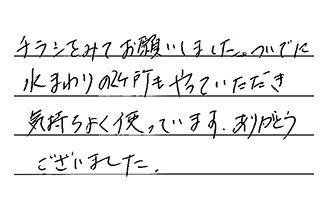 チラシをみてお願いしました。ついでに
水まわりの2ヶ所もやっていただき
気持ちよく使っています。ありがとう
ございました。